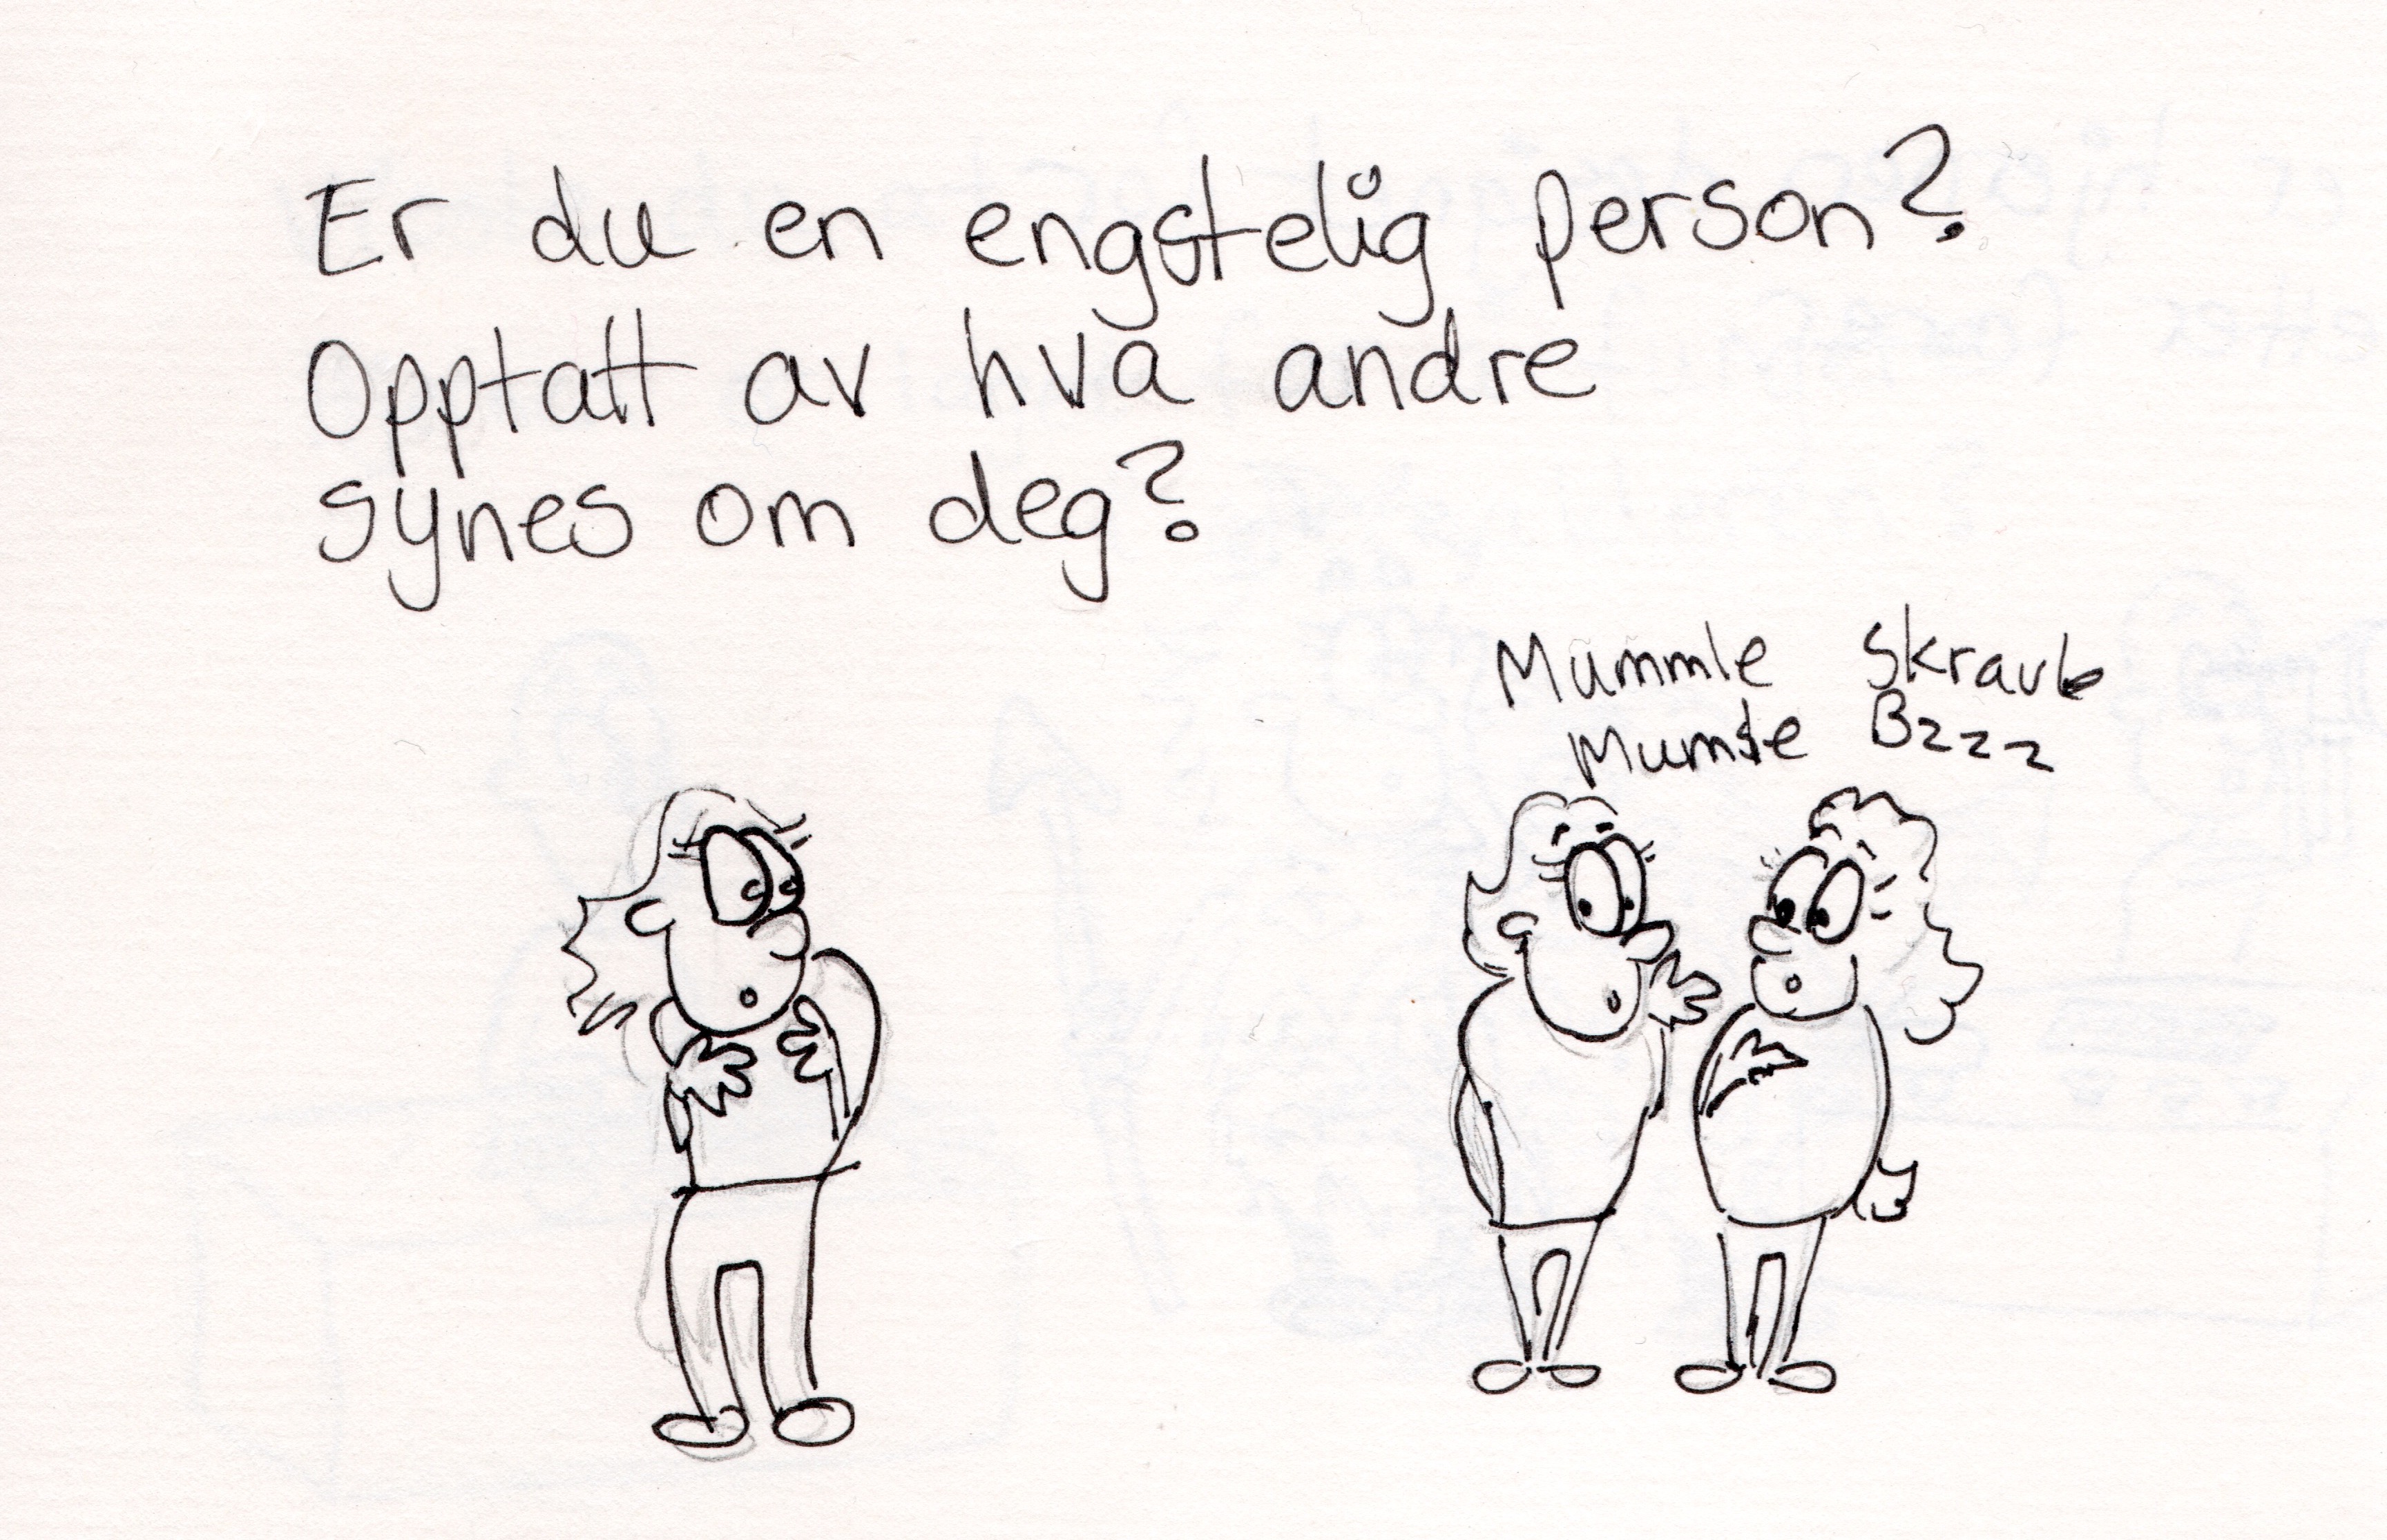 Er du en engstelig person?
Opptatt av hva andre
synes om deg?
Mummle Skravle
Mumle Bzzz